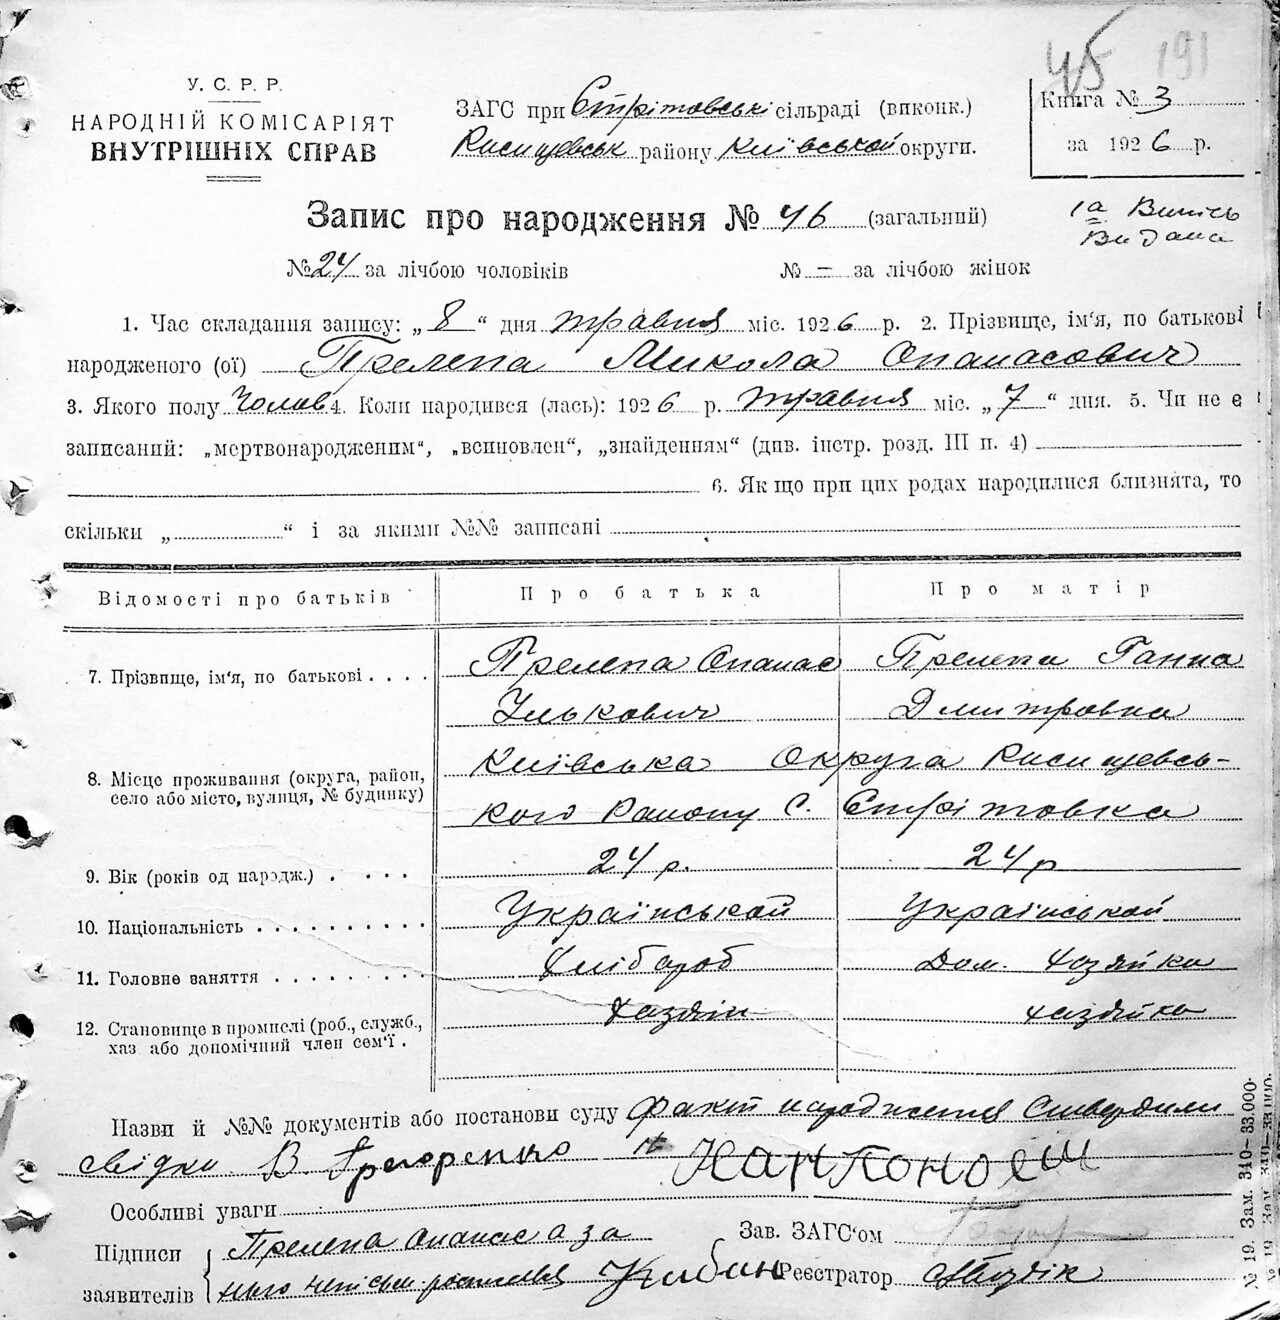 45 191
У. С. Р. Р.
НАРОДНІЙ КОМІСАРІЯТ
ВНУТРІШНІХ СПРАВ
ЗАГС при Стрітовські сільраді (виконк.)
Ржищевськ району Київської округи.
Книга № 3
за 1926 р.
Запис про народження № 46 (загальний)
1а Випись
Видана
№ 24 за лічбою чоловіків № – за лічбою жінок
1. Час складання запису: „8“ дня травня міс. 1926 р. 2. Прізвище, ім'я, по батькові
народженого (ої) Прелепа Микола Опанасович
3. Якого полу Чолов 4. Коли народився (лась): 1926 р. травня міс. „7“ дня. 5. Чи не є
записаний: „мертвонародженим“, „всиновлен“, „знайденням“ (див. інстр. розд. III п. 4)
6. Якщо при цих родах народилися близнята, то
скільки „ “ і за якими №№ записані
Відомості про батьків Про батька Про матір
7. Прізвище, ім'я, по батькові Прелепа Опанас Прелепа Ганна
Улькович Дмитровна
8. Місце проживання (округа, район, село або місто, вулиця, № будинку) Київська Округа Ржищевсь-
кого Району С. Стрітовка
9. Вік (років од народж.) 24 р. 24 р
10. Національність Українськой Українськой
11. Головне заняття Хлібороб Дом. Хозяйка
12. Становище в промислі (роб., служб., хаз або допомічний член сем'ї. Хазяін хазяйка
Назви й №№ документів або постанови суду факт народження Ствердили
свідки В Грегоренко
Особливі уваги
Підписи заявителів Прелепа Опанас а за
нього
Зав. ЗАГС'ом
Реєстратор
№ 19. Зам. 340–33.000.